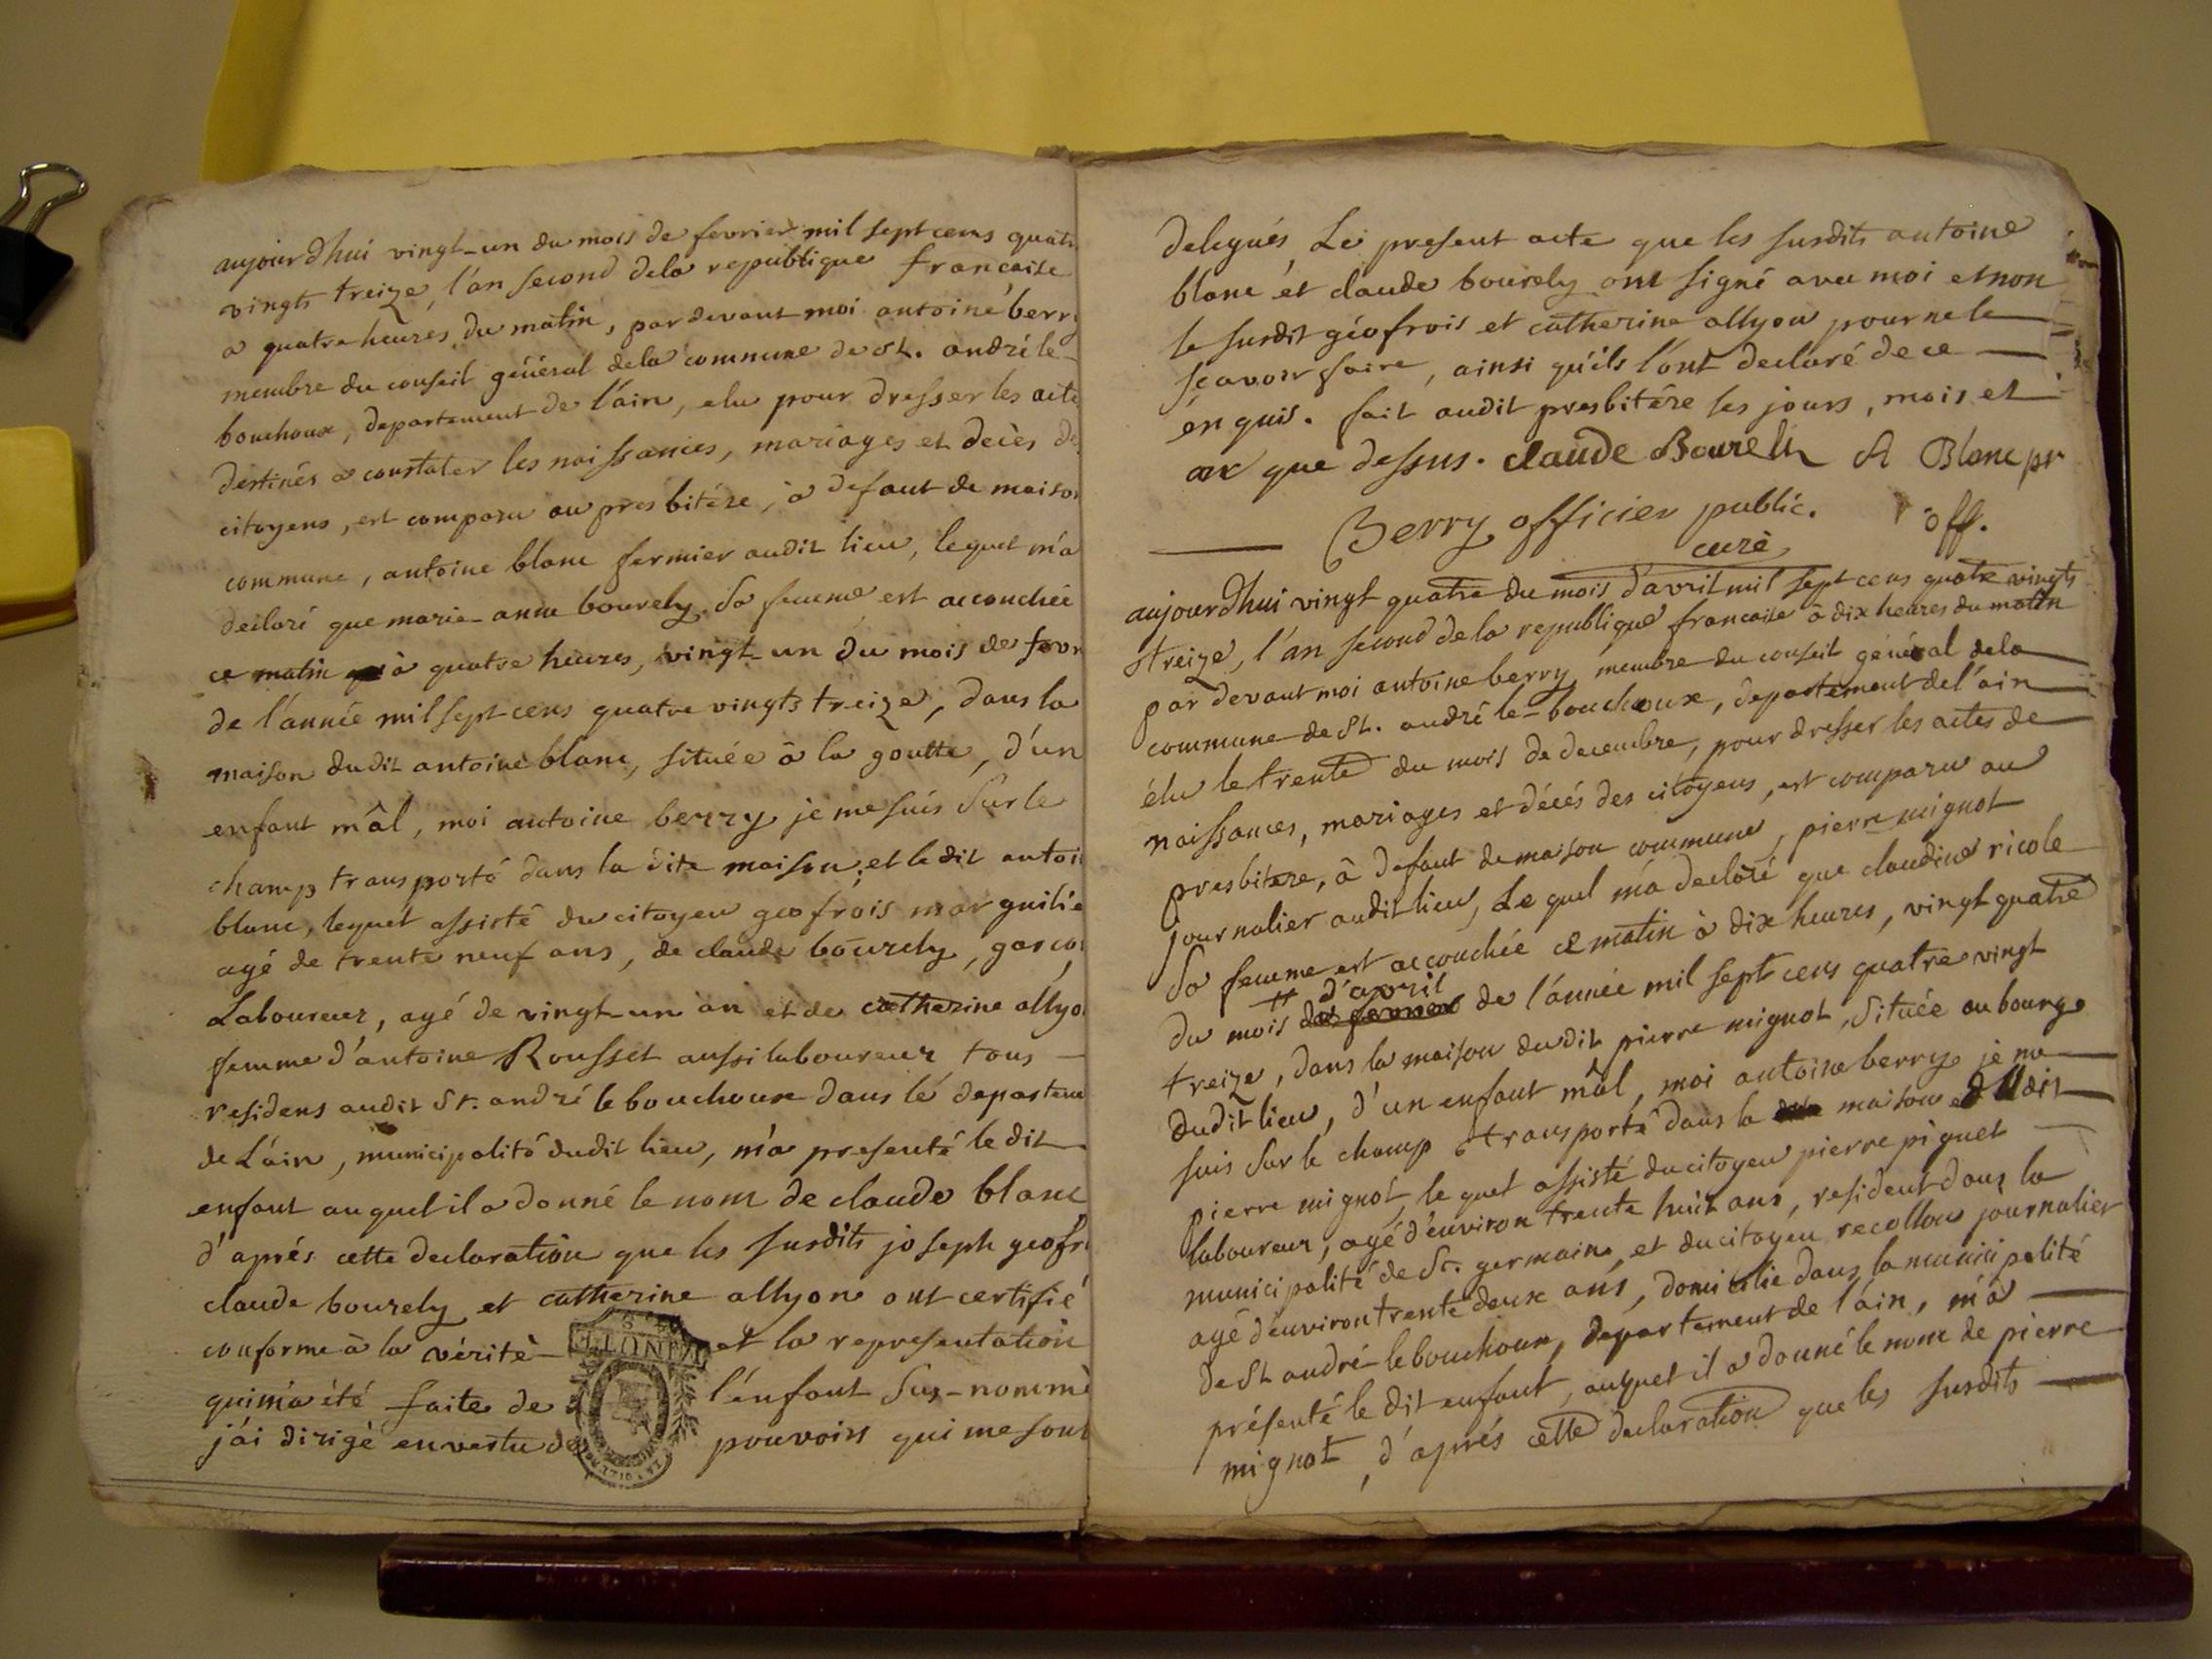 aujourdhui vingt-un du mois de fevrier mil sept cens quatr
vingts treize, l'an second dela republique francaise
a quatre heures du matin, par devant moi antoine berry
membre du conseil général dela commune de st. andré le-
bouchoux, departement de l'ain, elu pour dresser les acte
destinés a constater les naissances, mariages et decès de
citoyens, est comparu au presbitére, à defaut de maison
commune, antoine blanc fermier audit lieu, lequel m'a
declaré que marie-anne bourely sa femme est accouchée
ce matin à quatre heures, vingt-un du mois de fevr
de l'année mil sept cens quatre vingts treize, dans la
maison dudit antoine blanc, située à la goutte, d'un
enfant mâl, moi antoine berry je me suis sur le
champ transporté dans la dite maison, et le dit antoi
blanc, lequel assisté du citoyen geofrois marguilie
agé de trente neuf ans, de claude bourely, garcon
Laboureur, agé de vingt-un an et de catherine allyo
femme d'antoine Rousset aussi laboureur tous —
residens audit St. andré le bouchoux dans le departem
de L'ain, municipalité dudit lieu, m'a presenté le dit
enfant auquel il a donné le nom de claude blanc,
d'aprés cette declaration que les susdits joseph geofr
claude bourely et catherine allyon ont certifié
conforme à la vérité - et la representation
qui m'a été faite de l'enfant sus-nommé
j'ai dirigé en vertu des pouvoirs qui me sont
delegués, Le present acte que les susdits antoine
blanc et claude bourely ont signé avec moi et non
le susdit géofrois et catherine allyon pour ne le
sçavoir faire, ainsi qu'ils l'ont declaré de ce —
enquis. fait audit presbitére les jours, mois et
an que dessus. claude Bourely A Blanc pr
Berry officier public. off.
curé
aujourdhui vingt quatre du mois d'avril mil sept cens quatre vingts
treize, l'an second de la republique francaise à dix heures du matin
par devant moi antoine berry, membre du conseil général dela
commune de St. andré le-bouchoux, departement del'ain
élu le trente du mois de decembre, pour dresser les actes de
naissances, mariages et décés des citoyens, est comparu au
presbitere, à defaut de maison commune, pierre mignot
journalier audit lieu, Le quel m'a declaré que claudine ricole
sa femme est accouchée ce matin à dix heures, vingt quatre
# d'avril
du mois de fevrier de l'année mil sept cens quatre vingt
treize, dans la maison dudit pierre mignot, située au bourg
dudit lieu, d'un enfant mâl, moi antoine berry je me
suis sur le champ transporté dans la maison et ledit
pierre mignot, le quel assisté du citoyen pierre piguet
laboureur, agé d'environ trente huit ans, resident dans la
municipalité de St. germain, et du citoyen recollon journalier
agé d'environ trente deux ans, domicilie dans la municipalité
de St andré-le bouchoux, departement de l'ain, m'a —
présenté le dit enfant, auquel il a donné le nom de pierre
mignot, d'aprés cette declaration que les susdits —